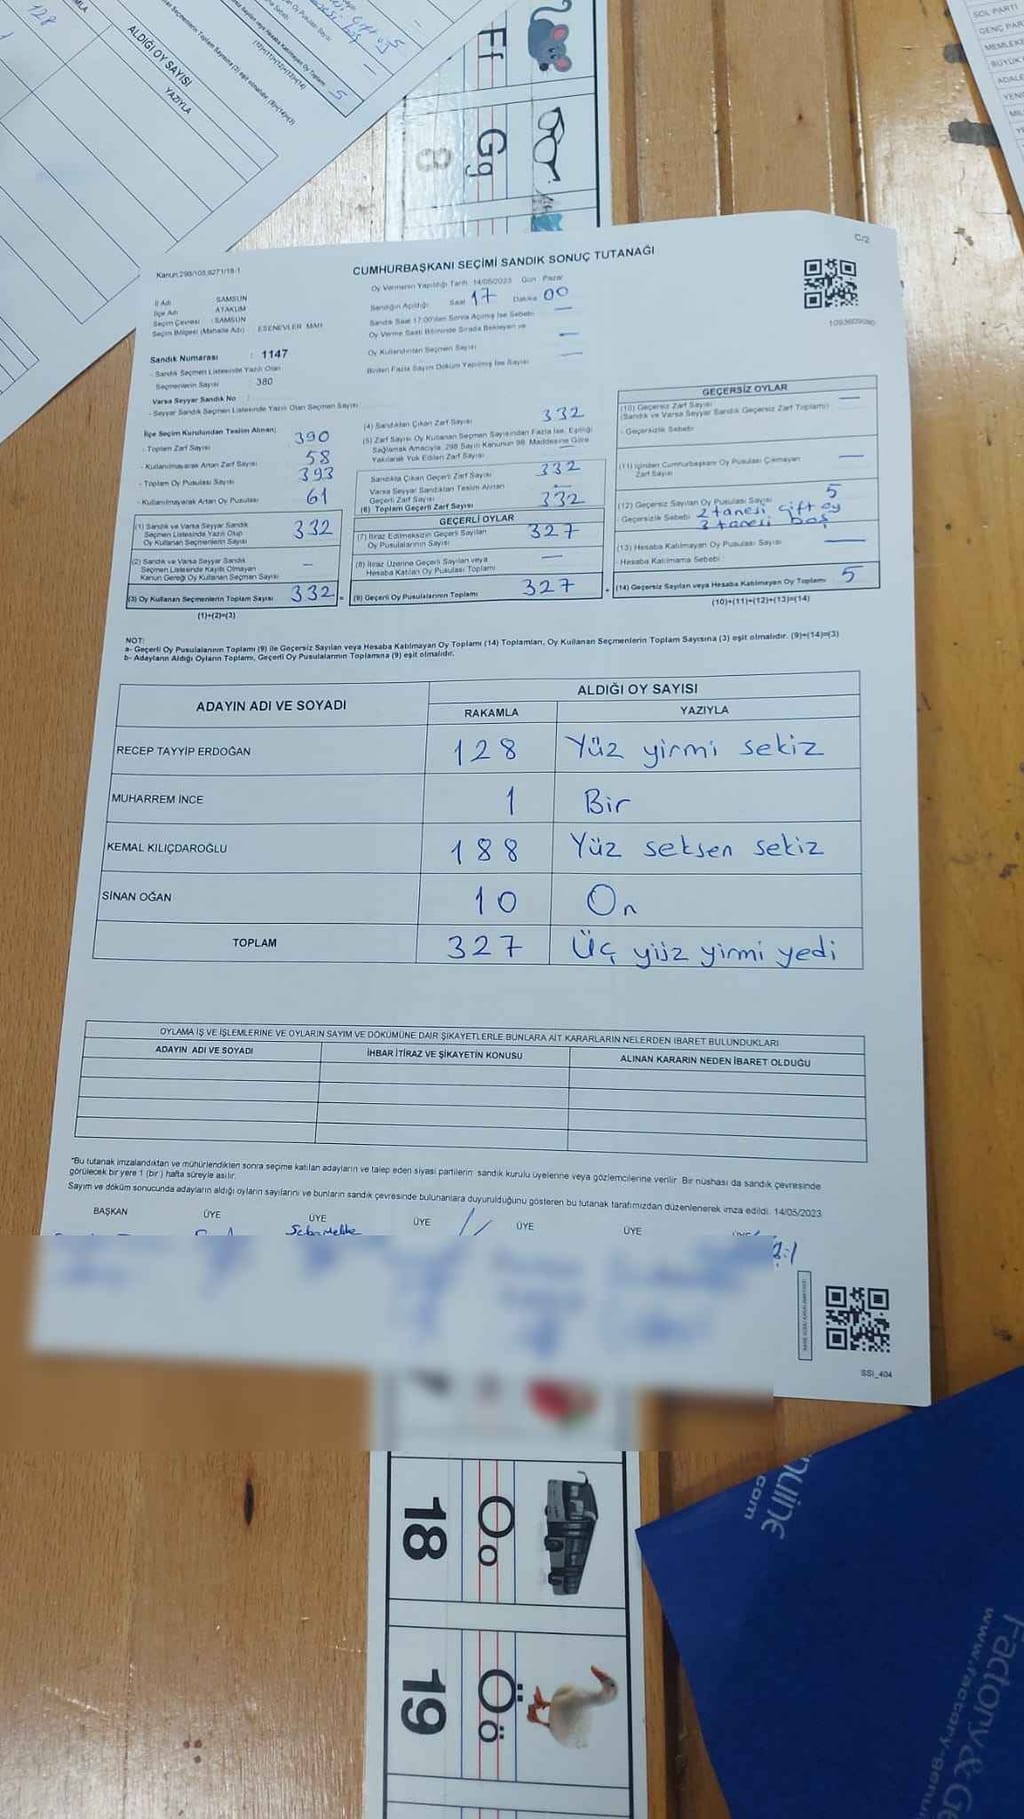 128
ALDIĞI OY SAYISI
YAZIYLA
(10)+(11)+(12)+(13)=(14)
5
Ff
Gg
8
SOL PARTİ
C/2
CUMHURBAŞKANI SEÇİMİ SANDIK SONUÇ TUTANAĞI
Kanun:298/105,6271/18-1
Oy Vermenin Yapıldığı Tarih :14/05/2023 Gün : Pazar
İl Adı : SAMSUN
İlçe Adı : ATAKUM
Seçim Çevresi : SAMSUN
Seçim Bölgesi (Mahalle Adı) : ESENEVLER MAH
Sandığın Açıldığı Saat 17 Dakika 00
Sandık Saat 17:00'den Sonra Açılmış İse Sebebi —
Oy Verme Saati Bitiminde Sırada Bekleyen ve
Oy Kullandırılan Seçmen Sayısı —
Birden Fazla Sayım Döküm Yapılmış İse Sayısı —
Sandık Numarası : 1147
- Sandık Seçmen Listesinde Yazılı Olan
Seçmenlerin Sayısı 380
Varsa Seyyar Sandık No :
- Seyyar Sandık Seçmen Listesinde Yazılı Olan Seçmen Sayısı
İlçe Seçim Kurulundan Teslim Alınan;
- Toplam Zarf Sayısı 390
- Kullanılmayarak Artan Zarf Sayısı 58
- Toplam Oy Pusulası Sayısı 393
- Kullanılmayarak Artan Oy Pusulası 61
(1) Sandık ve Varsa Seyyar Sandık
Seçmen Listesinde Yazılı Olup
Oy Kullanan Seçmenlerin Sayısı 332
(2) Sandık ve Varsa Seyyar Sandık
Seçmen Listesinde Kayıtlı Olmayan
Kanun Gereği Oy Kullanan Seçmen Sayısı —
(3) Oy Kullanan Seçmenlerin Toplam Sayısı 332
(1)+(2)=(3)
(4) Sandıktan Çıkan Zarf Sayısı 332
(5) Zarf Sayısı Oy Kullanan Seçmen Sayısından Fazla İse, Eşitliği
Sağlamak Amacıyla, 298 Sayılı Kanunun 98. Maddesine Göre
Yakılarak Yok Edilen Zarf Sayısı —
Sandıkta Çıkan Geçerli Zarf Sayısı 332
Varsa Seyyar Sandıktan Teslim Alınan
Geçerli Zarf Sayısı —
(6) Toplam Geçerli Zarf Sayısı 332
GEÇERLİ OYLAR
(7) İtiraz Edilmeksizin Geçerli Sayılan
Oy Pusulalarının Sayısı 327
(8) İtiraz Üzerine Geçerli Sayılan veya
Hesaba Katılan Oy Pusulası Toplamı —
= (9) Geçerli Oy Pusulalarının Toplamı 327
1093609080
GEÇERSİZ OYLAR
(10) Geçersiz Zarf Sayısı
(Sandık ve Varsa Seyyar Sandık Geçersiz Zarf Toplamı) —
- Geçersizlik Sebebi :
(11) İçinden Cumhurbaşkanı Oy Pusulası Çıkmayan
Zarf Sayısı —
(12) Geçersiz Sayılan Oy Pusulası Sayısı 5
- Geçersizlik Sebebi : 2 tanesi çift oy
3 tanesi boş
(13) Hesaba Katılmayan Oy Pusulası Sayısı —
- Hesaba Katılmama Sebebi :
+ (14) Geçersiz Sayılan veya Hesaba Katılmayan Oy Toplamı 5
(10)+(11)+(12)+(13)=(14)
NOT:
a- Geçerli Oy Pusulalarının Toplamı (9) ile Geçersiz Sayılan veya Hesaba Katılmayan Oy Toplamı (14) Toplamları, Oy Kullanan Seçmenlerin Toplam Sayısına (3) eşit olmalıdır. (9)+(14)=(3)
b- Adayların Aldığı Oyların Toplamı, Geçerli Oy Pusulalarının Toplamına (9) eşit olmalıdır.
ADAYIN ADI VE SOYADI
ALDIĞI OY SAYISI
RAKAMLA YAZIYLA
RECEP TAYYİP ERDOĞAN 128 Yüz yirmi sekiz
MUHARREM İNCE 1 Bir
KEMAL KILIÇDAROĞLU 188 Yüz seksen sekiz
SİNAN OĞAN 10 On
TOPLAM 327 Üç yüz yirmi yedi
OYLAMA İŞ VE İŞLEMLERİNE VE OYLARIN SAYIM VE DÖKÜMÜNE DAİR ŞİKAYETLERLE BUNLARA AİT KARARLARIN NELERDEN İBARET BULUNDUKLARI
ADAYIN ADI VE SOYADI İHBAR İTİRAZ VE ŞİKAYETİN KONUSU ALINAN KARARIN NEDEN İBARET OLDUĞU
*Bu tutanak imzalandıktan ve mühürlendikten sonra seçime katılan adayların ve talep eden siyasi partilerin sandık kurulu üyelerine veya gözlemcilerine verilir. Bir nüshası da sandık çevresinde
görülecek bir yere 1 (bir) hafta süreyle asılır.
Sayım ve döküm sonucunda adayların aldığı oyların sayılarını ve bunların sandık çevresinde bulunanlara duyurulduğunu gösteren bu tutanak tarafımızdan düzenlenerek imza edildi. 14/05/2023
BAŞKAN ÜYE ÜYE ÜYE ÜYE ÜYE
SSI_404
18 Oo
19 Öö
nuine
com
Factory&G